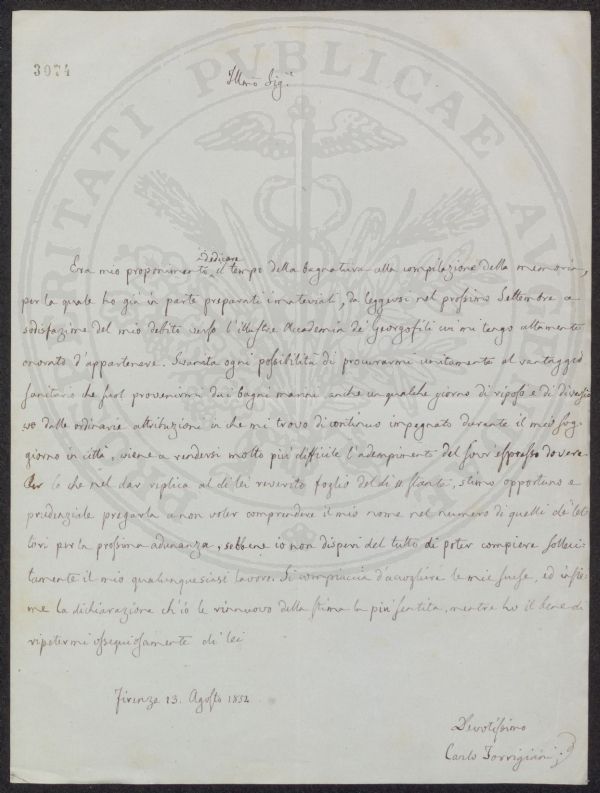 3074
Illmo Sig.r
dedicare
Era mio proponimento il tempo della bagnatura alla compilazione della memoria,
per la quale ho già in parte preparati i materiali, da leggersi nel prossimo Settembre a
sodisfazione del mio debito verso l'illustre Accademia de' Georgofili cui mi tengo altamente
onorato d'appartenere. Svanita ogni possibilità di procurarmi unitamente al vantaggio
sanitario che suol provenirmi dai bagni marini anche un qualche giorno di riposo e di diversio
ne dalle ordinarie attribuzioni in che mi trovo di continuo impegnato durante il mio sog
giorno in città, viene a rendersi molto più difficile l'adempimento del sovr'espresso dovere
Per lo che nel dar replica al di lei reverito foglio del dì 11 stante, stimo opportuno e
prudenziale pregarla a non voler comprendere il mio nome nel numero di quelli de' let
tori per la prossima adunanza, sebbene io non disperi del tutto di poter compiere solleci
tamente il mio qualunquesiasi lavoro. Si compiaccia d'accogliere le mie scuse, ed insie
me la dichiarazione ch'io le rinnuovo della stima la più sentita, mentre ho il bene di
ripetermi ossequiosamente di lei
Firenze 13. Agosto 1852
Devotissimo
Carlo Torrigiani
PROSPERITATI PUBLICAE AUGENDAE